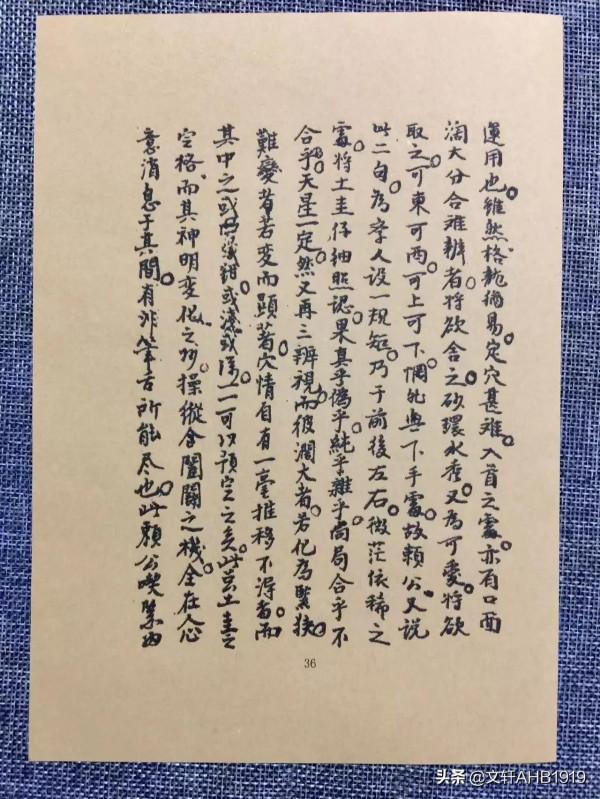 運用也。雖然格龍猶易。定穴甚難。入首之處。亦有口面
濶大分合难辨者。將欲舍之。砂環水秀。又為可愛。將欲
取之。可東可西。可上可下。惘然無下手處。故賴公又說
此二句。為來人設一規矩。乃于前後左右。微茫依稀之
處。將土圭仔細照認。果真乎。偽乎。純乎。雜乎。尚局合乎不
合乎。天星一定。然又再三辨視。而彼濶大者。若化為緊狹。
難變者。若变而顯著。穴情自有一毫推移不得者。而
其中之或或淺或深。一一可以預定之矣。此豈土圭之
空格。而其神明变化之妙。操縱合闔闢之機。全在人心
意消息于其間。有非筆舌所能尽也。此賴公喫緊為
36
头条 @文轩AHB1919